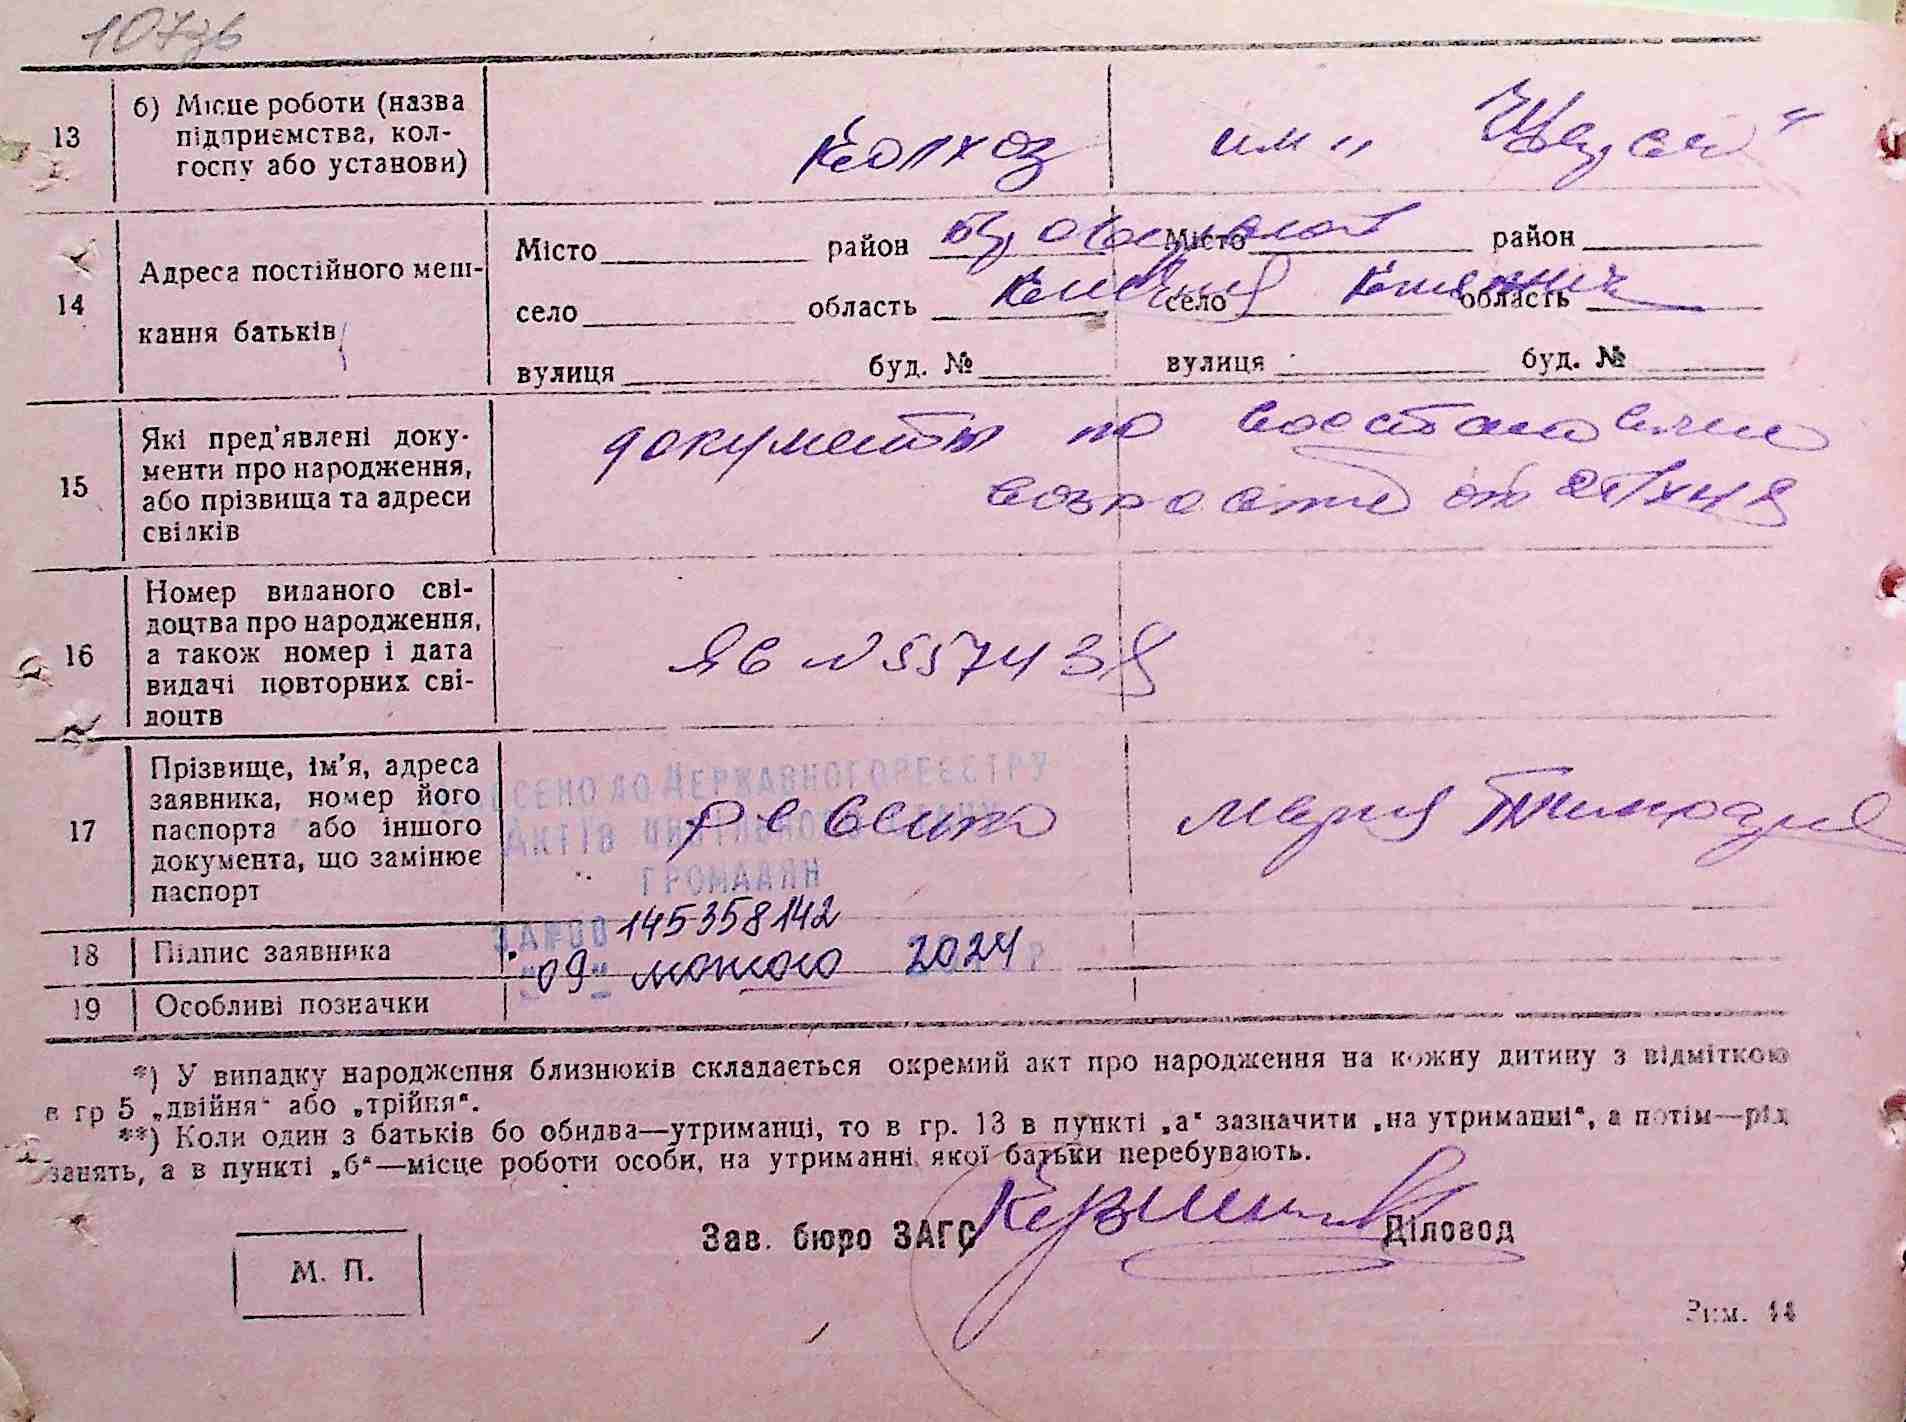 107зв
13 б) Місце роботи (назва
підприємства, кол-
госпу або установи)
Колхоз им "
14 Адреса постійного меш-
кання батьків
Місто район Місто район
село область село область
вулиця буд. № вулиця буд. №
15 Які пред'явлені доку-
менти про народження,
або прізвища та адреси
свідків
документы по восстановлению
возраста от
16 Номер виданого сві-
доцтва про народження,
а також номер і дата
видачі повторних сві-
доцтв
ЯБ N 557438
17 Прізвище, ім'я, адреса
заявника, номер його
паспорта або іншого
документа, що замінює
паспорт
Ревенко Мария
ВНЕСЕНО ДО ДЕРЖАВНОГО РЕЄСТРУ
АКТІВ ЦИВІЛЬНОГО СТАНУ
ГРОМАДЯН
18 Підпис заявника
ЗА №00 145358142
"09" лютого 2024 р
19 Особливі позначки
*) У випадку народження близнюків складається окремий акт про народження на кожну дитину з відміткою
в гр 5 „двійня“ або „трійня“.
**) Коли один з батьків бо обидва—утриманці, то в гр. 13 в пункті „а“ зазначити „на утриманні“, а потім—рід
занять, а в пункті „б“—місце роботи особи, на утриманні якої батьки перебувають.
Зав. бюро ЗАГС Діловод
М. П.